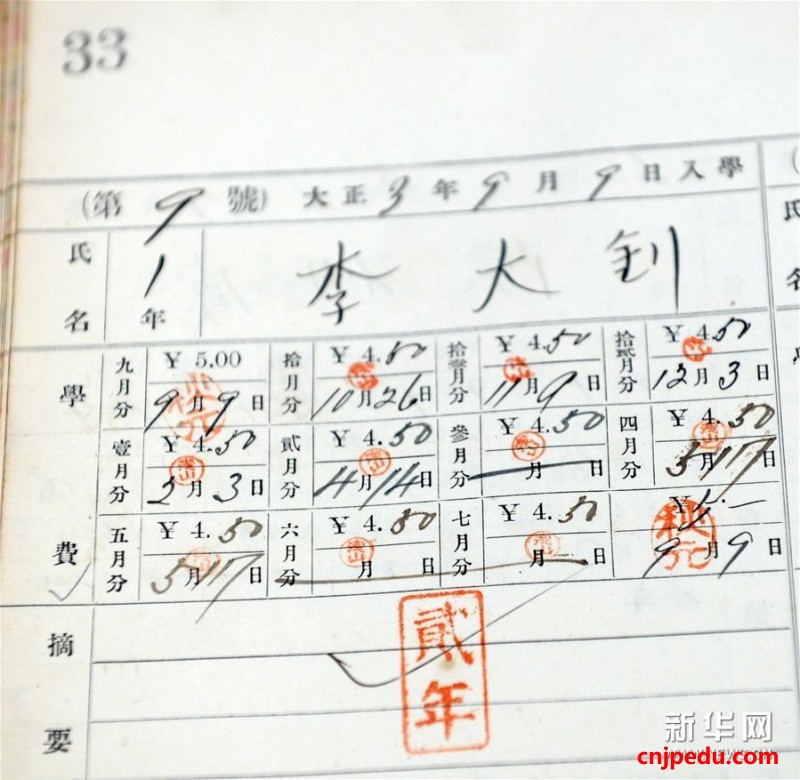 33
(第 9 號) 大正 3 年 9 月 9 日入學
氏名 1年 李大釗
學費
九月分 ¥ 5.00 9月9日
拾月分 ¥ 4.50 10月26日
拾壹月分 ¥ 4.50 11月9日
拾貳月分 ¥ 4.50 12月3日
壹月分 ¥ 4.50 2月3日
貳月分 ¥ 4.50 4月14日
參月分 ¥ 4.50 月 日
四月分 ¥ 4.50 5月17日
五月分 ¥ 4.50 5月17日
六月分 ¥ 4.50 月 日
七月分 ¥ 4.50 月 日
¥1.— 9月9日
摘要
貳年
新华网
cnjpedu.com